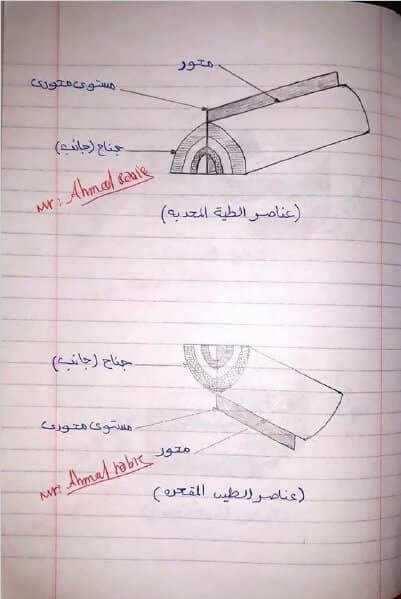 محور
مستوى محورى
جناح (جانب)
Mr: Ahmed Rabie
(عناصر الطية المحدبه)
جناح (جانب)
مستوى محورى
محور
Mr: Ahmed Rabie
(عناصر الطيه المقعره)